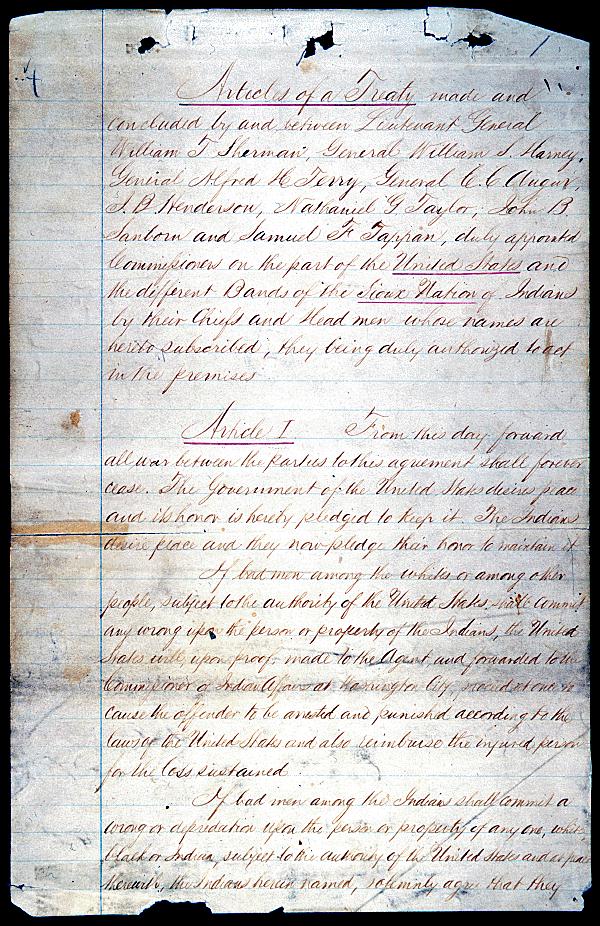 Articles of a Treaty made and
concluded by and between Lieutenant General
William T. Sherman, General William S. Harney,
General Alfred H. Terry, General C. C. Augur,
J. B. Henderson, Nathaniel G. Taylor, John B.
Sanborn and Samuel F. Tappan, duly appointed
Commissioners on the part of the United States and
the different Bands of the Sioux Nation of Indians
by their Chiefs and Head men whose names are
hereto subscribed, they being duly authorized to act
in the premises
Article I From this day forward
all war between the parties to this agreement shall forever
cease. The Government of the United States desires peace
and its honor is hereby pledged to keep it. The Indians
desire peace and they now pledge their honor to maintain it
If bad men among the whites or among other
people, subject to the authority of the United States, shall commit
any wrong upon the person or property of the Indians, the United
States will, upon proof made to the Agent and forwarded to the
Commissioner of Indian Affairs at Washington City, proceed at once to
cause the offender to be arrested and punished according to the
laws of the United States and also reimburse the injured person
for the loss sustained.
If bad men among the Indians shall commit a
wrong or depredation upon the person or property of any one, white,
black or Indian, subject to the authority of the United States and at peace
therewith, the Indians herein named, solemnly agree that they